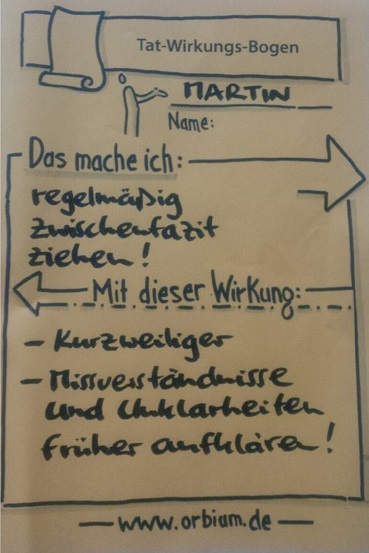 Tat-Wirkungs-Bogen
MARTIN
Name:
Das mache ich:
regelmäßig
Zwischenfazit
ziehen!
Mit dieser Wirkung:
- Kurzweiliger
- Missverständnisse
und Unklarheiten
früher aufklären!
- www.orbium.de -